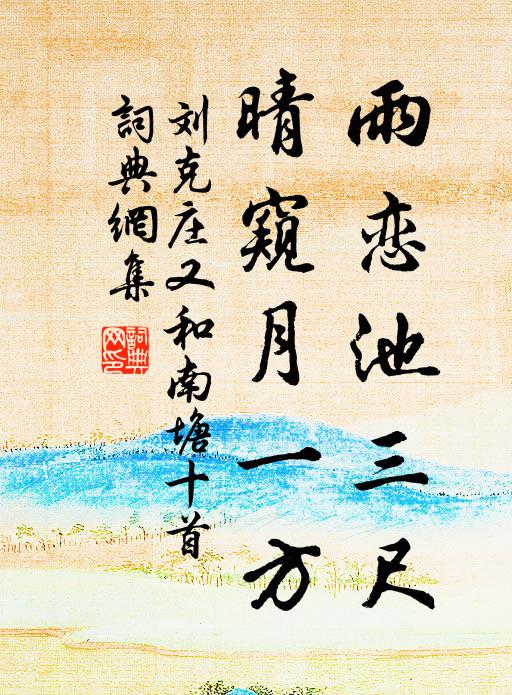 雨恋池三尺
晴窥月一方
刘克庄又和南塘十首
詞典網集
詞典网印